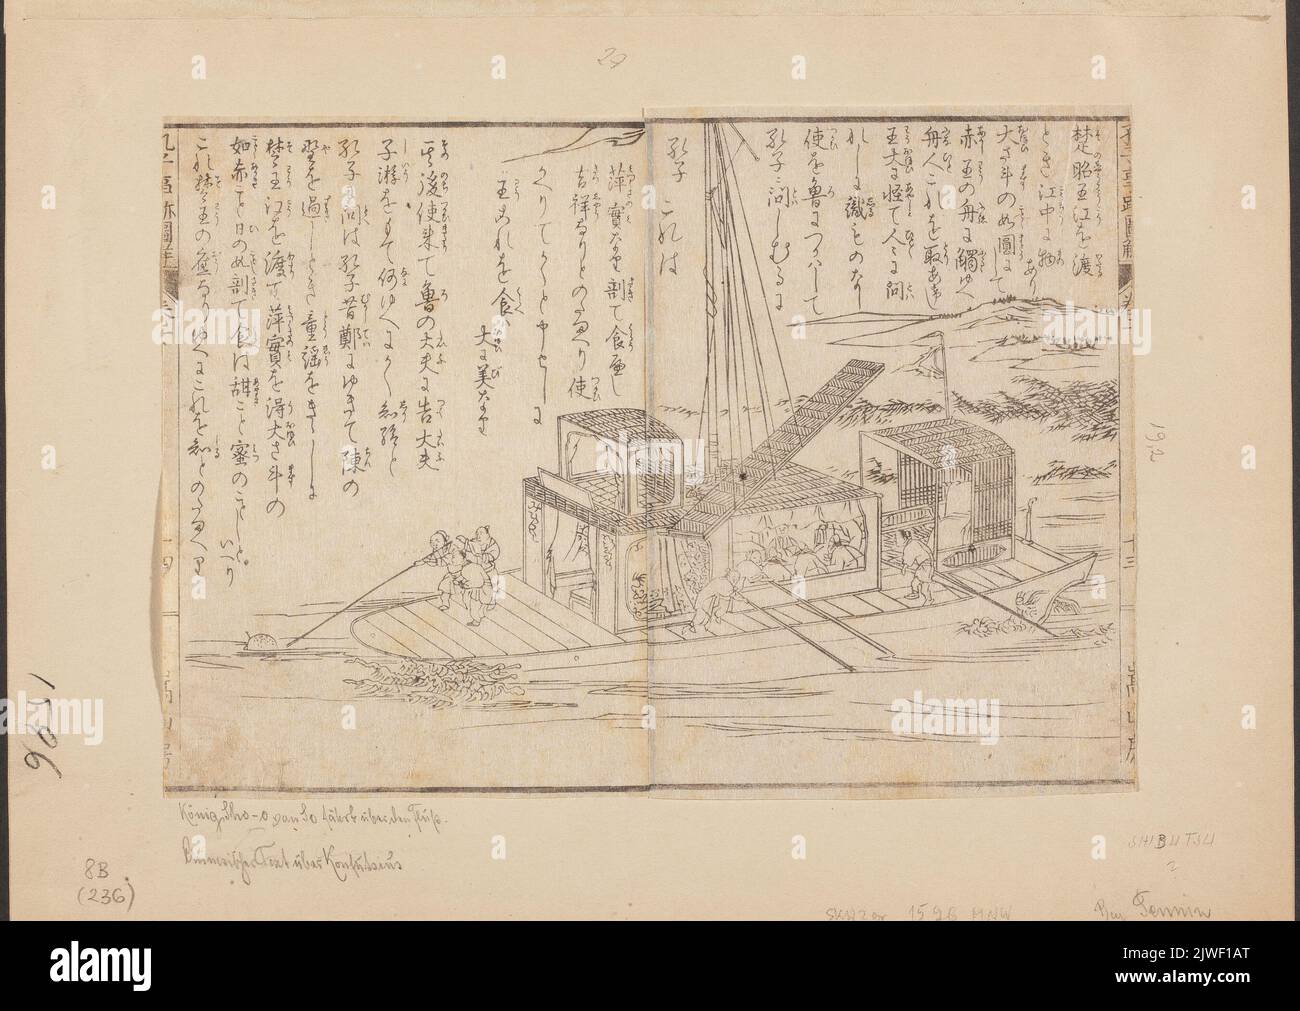 楚昭王江を渡
とき江中に物あり
大さ斗の如圓にして
赤王の舟に觸ゆへ
舟人これを取あぐ
王大に怪て人に問
れしに識ものなし
使を魯につかはして
孔子に問しむるに
孔子 これは
萍實なり剖て食べし
吉祥なりとのたまへり使
かへりてかくと申せしに
王これを食ふ
大に美なり
其後使来て魯の大夫に告大夫
子游をもて何ゆへにかく
孔子に問は孔子昔鄭にゆきて陳の
野を過しとき童謡をきゝしに
楚王江を渡て萍實を得大さ斗の
如赤こと日の如剖て食は甜こと蜜のごとしといへり
これ楚王の應なりゆへにこれを知とのたまへり
孔子事跡圖解
十三
十四
嵩山房
29
192
9051
König Sho-o von So fährt über den Fluß.
Text über Konfutseus
8B
(236)
SHIBUTSU
2
alamy
Image ID: 2WF1AT
www.alamy.com